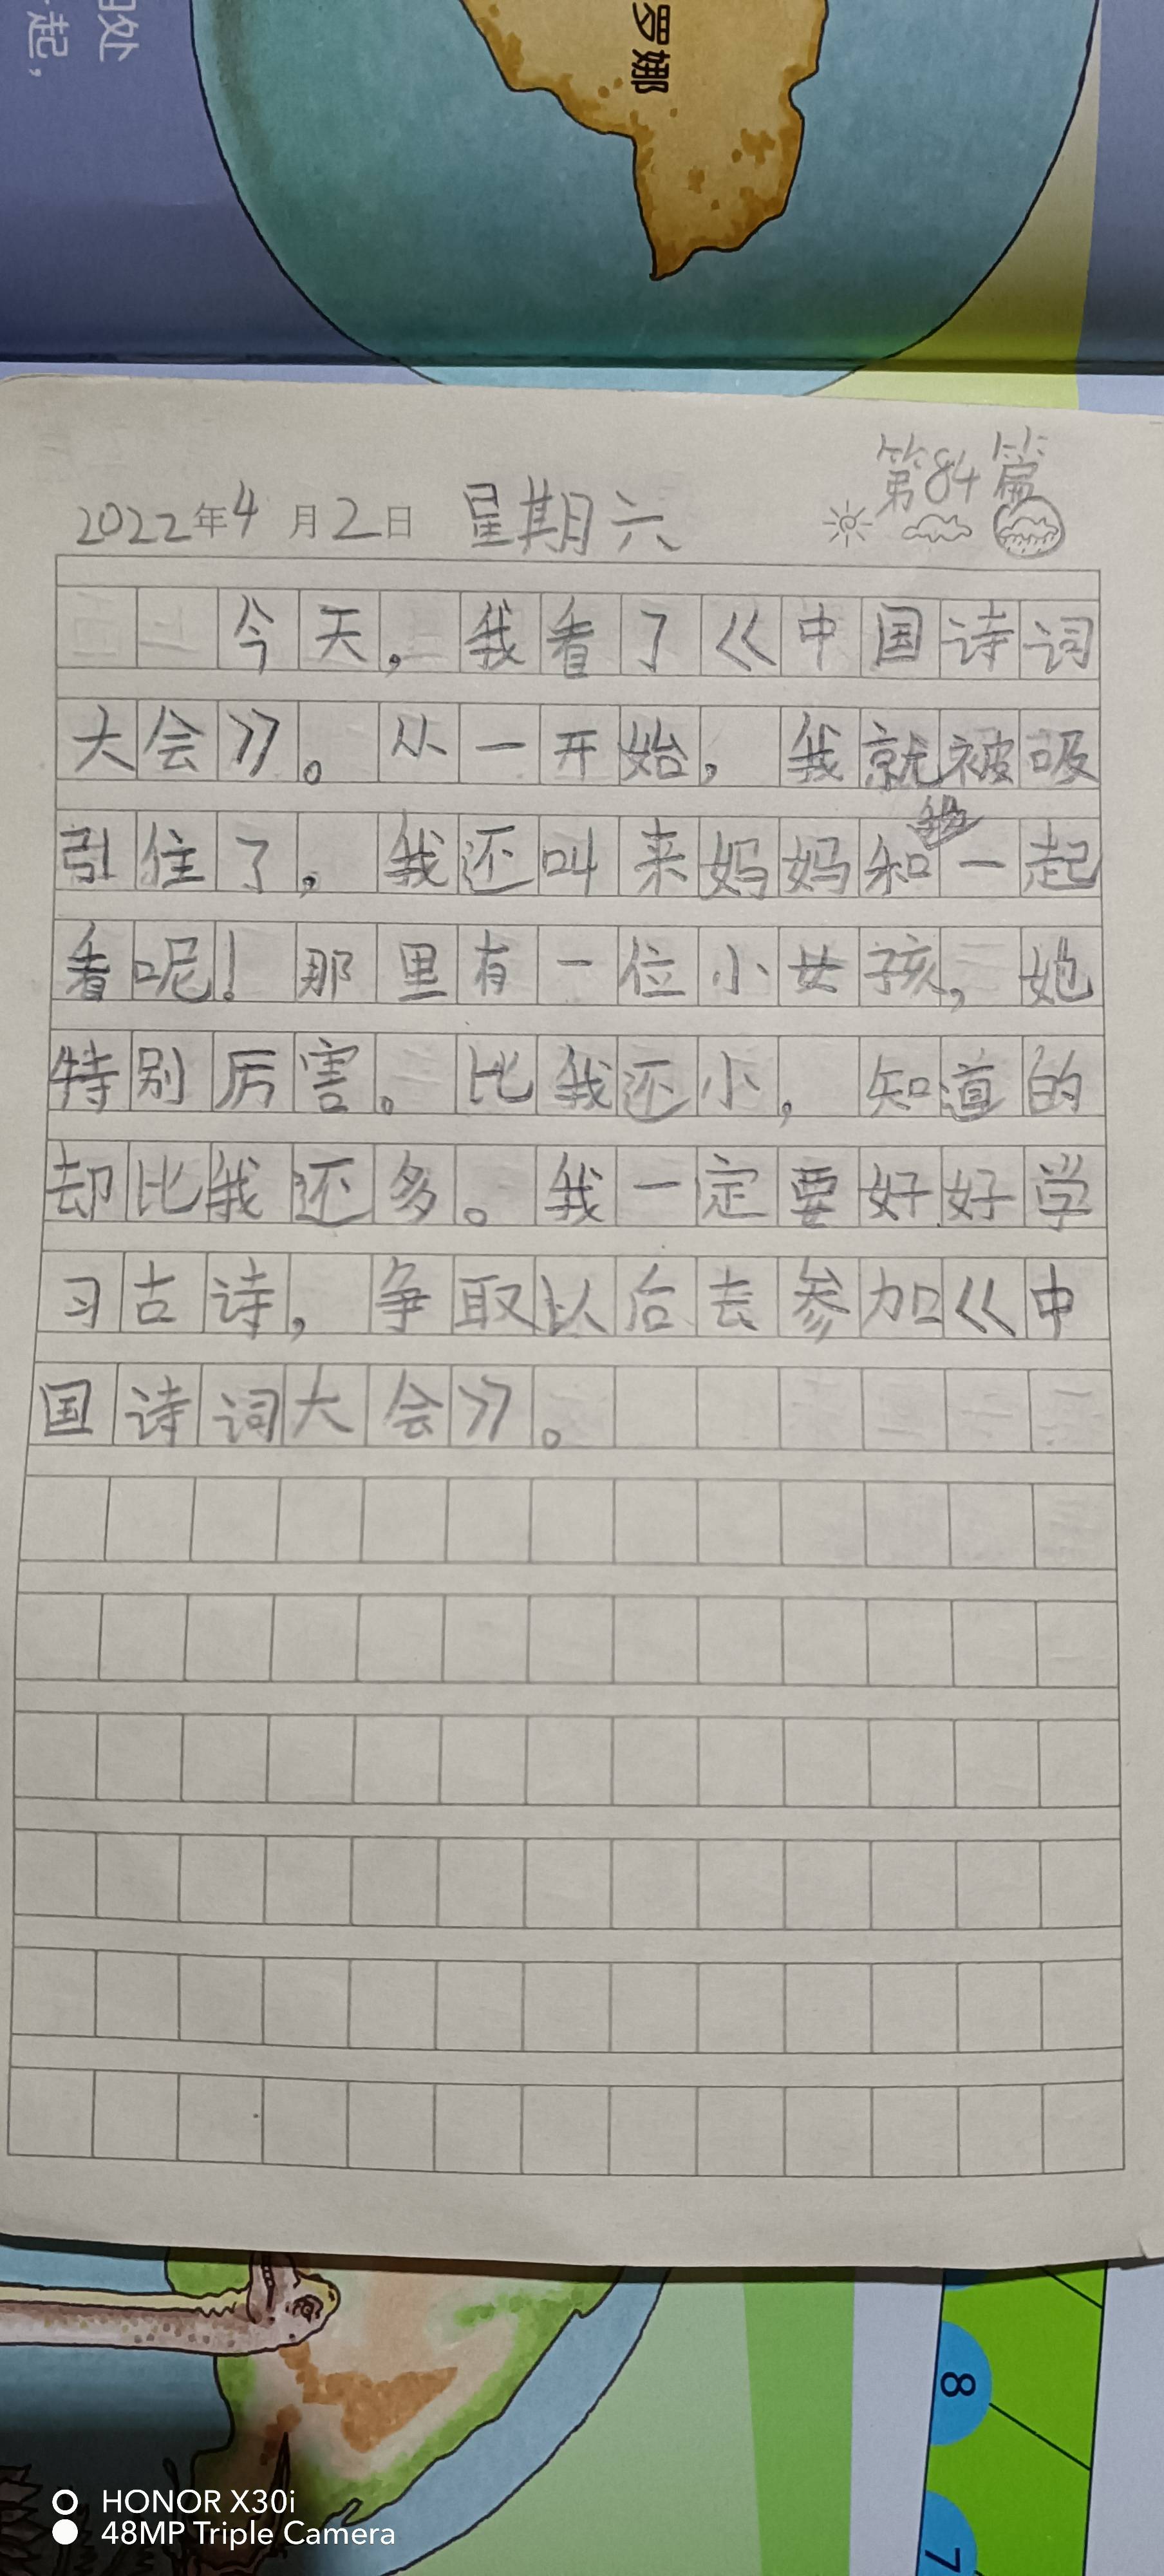 罗娜
旧处
起，
第84篇
2022年4月2日 星期六
今天，我看了《中国诗词
大会》。从一开始，我就被吸
引住了，我还叫来妈妈和我一起
看呢！那里有一位小女孩，她
特别厉害。比我还小，知道的
却比我还多。我一定要好好学
习古诗，争取以后去参加《中
国诗词大会》。
8
7
HONOR X30i
48MP Triple Camera